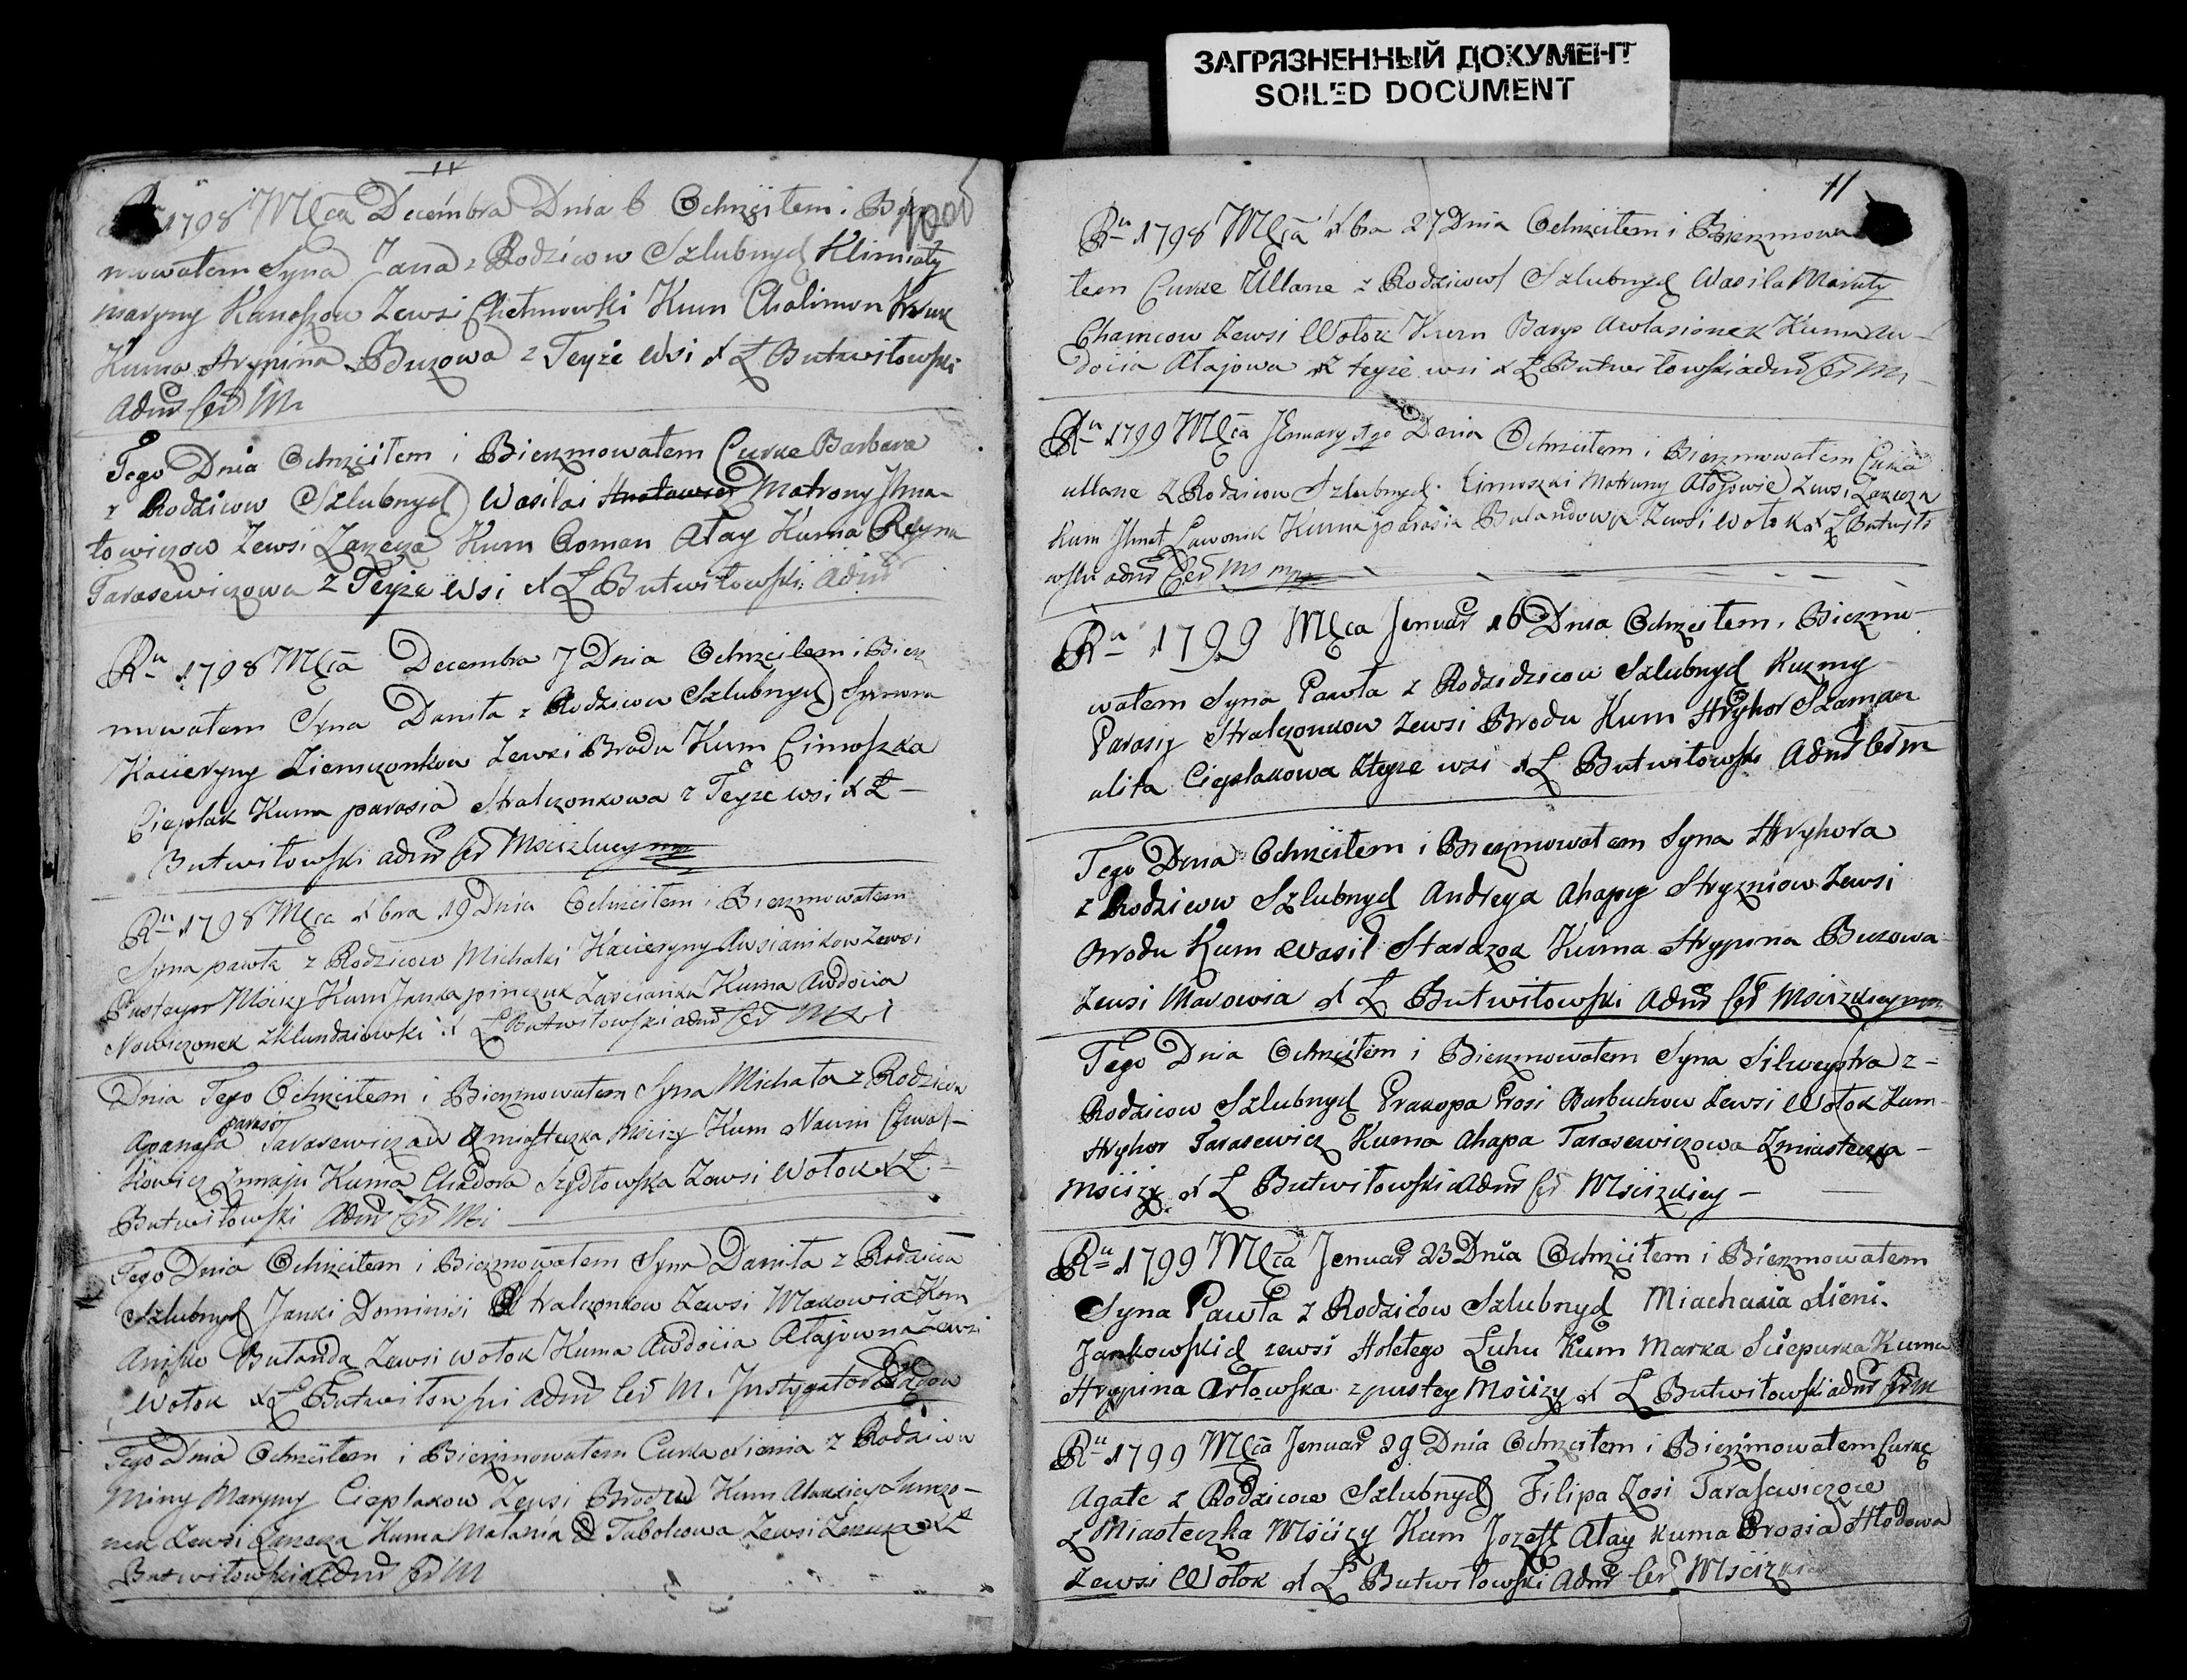 ЗАГРЯЗНЕННЫЙ ДОКУМЕНТ
SOILED DOCUMENT
1798 Mẹca Decembra Dnia 6 Ochrzciłem i
mowałem Syna Jana z Rodzicow Szlubnych Klimiaty
maryny Zewsi Kum Chalimon Kruk
Kuma Hrypina Buzowa z Teyże Wsi X Ł Butwiłowski
Adm Cer M
Tego Dnia Ochrzciłem i Bierzmowałem Curke Barbara
z Rodzicow Szlubnych Wasila i Matrony Ihna-
towiczow Zewsi Zarecza Kum Roman Ałay Kuma Reyna
Tarasewiczowa z Teyże Wsi X Ł Butwiłowski Adm
Ru 1798 Mca Decembra 7 Dnia Ochrzciłem i Bierz
mowałem Syna Daniła z Rodzicow Szlubnych Symona
Kacieryny Ziemczonkow Zewsi Brodu Kum Cimoszka
Cieplak Kuma parasia Stralczonkowa z Teyże wsi X Ł
Butwiłowski adm Cer Mscizkiey
Ru 1798 Mca Xbra 19 Dnia Ochrzciłem i Bierzmowałem
Syna pawła z Rodzicow Michałki Kacieryny Awsianikow Zewsi
Pustey Mscizy Kum Janka pinczuk Zascianka Kuma Awdocia
Nowiczonek X Ł Butwiłowski adm Cer
Dnia Tego Ochrzciłem i Bierzmowałem Syna Michała z Rodzicow
parasi
Apanasa Tarasewiczaw Z miasteczka Mscizy Kum Naum
Kuma Chadora Szydłowska Zewsi Wołok X Ł
Butwiłowski Adm Cer
Tego Dnia Ochrzciłem i Bierzmowałem Syna Daniła z Rodzicow
Szlubnych Janki Dominisi Stralczonkow Zewsi Makowia Kum
Anisko Bułanda Zewsi wołok Kuma Awdocia Ałajowna Zewsi
Wołok X Ł Butwiłowski adm Cer M. Instygator
Tego Dnia Ochrzciłem i Bierzmowałem Curka Xienia z Rodzicow
Miny Maryny Cieplakow Zewsi Brodu Kum
Zewsi Zarecza Kuma Małania Zewsi X Ł
Butwiłowski Adm Cer M
11
Ru 1798 Mca Xbra 27 Dnia Ochrzciłem i Bierzmowa
łem Curke Ullane z Rodzicow Szlubnych Wasila Maruty
Chamcow Zewsi Wołok Kum Barys Awłasionek Kuma Aw-
docia Ałajowa Z teyże wsi X Ł Butwiłowski adm Cer M
Ru 1799 Mca Jenuary 1go Dnia Ochrzciłem i Bierzmowałem Curke
ullane z Rodzicow Szlubnych Cimoszki Matruny Ałajowie Zewsi Zarecza
Kum Ihnat Kuma parasia Bułandowa Zewsi Wołok X Ł Butwiło
wski adm Cer
Ru 1799 Mca Jenuar 16 Dnia Ochrzciłem i Bierzmo-
wałem Syna Pawła z Rodzidzicow Szlubnych Kuzmy
Parasiy Stralczonkow Zewsi Brodu Kum Hryhor Szaman
ulita Cieplakowa Zteyże wsi X Ł Butwiłowski Adm Cer M
Tego Dnia Ochrzciłem i Bierzmowałem Syna Hryhora
z Rodzicow Szlubnych Andreya Ahapy Stryzniow Zewsi
Brodu Kum Wasil Kuma Hrypina Buzowa
Zewsi Makowia X Ł Butwiłowski Adm Cer Mscizkiey
Tego Dnia Ochrzciłem i Bierzmowałem Syna Silwestra z
Rodzicow Szlubnych Prakopa Prosi Barbuchow Zewsi Wołok Kum
Hryhor Tarasewicz Kuma Ahapa Tarasewiczowa Zmiasteczka
Mscizy X Ł Butwiłowski Adm Cer Mscizkiey
Ru 1799 Mca Jenuar 23 Dnia Ochrzciłem i Bierzmowałem
Syna Pawła z Rodzicow Szlubnych Xieni
Jankowskich zewsi Hołego Łuhu Kum Marka Kuma
Hrypina Arłowska z pustey Mscizy X Ł Butwiłowski adm Cer M
Ru 1799 Mca Jenuar 29 Dnia Ochrzciłem i Bierzmowałem Curke
Agate z Rodzicow Szlubnych Filipa Zosi Tarasewiczow
Z Miasteczka Mscizy Kum Jozeff Ałay Kuma Prosia Hłodowa
Zewsi Wołok X Ł Butwiłowski Adm Cer Mscizkiey